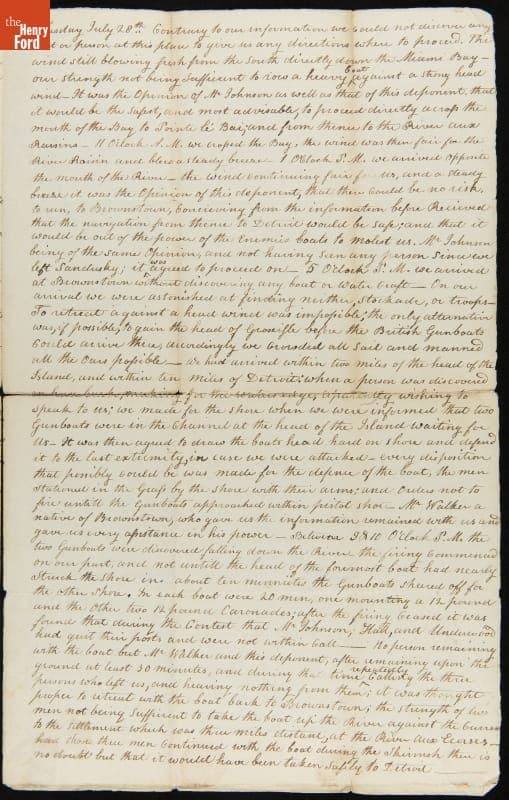 the
Henry
Ford
day July 28th. Contrary to our information we could not discover any
or person at this place to give us any directions where to proceed. The
wind still blowing fresh from the South directly down the Miami Bay—
our strength not being Sufficient to row a heavy boat against a strong head
wind— It was the Opinion of Mr Johnson as well as that of this deponent, that
it would be the Safest, and most advisable, to proceed directly across the
mouth of the Bay to Pointe le Bac, and from thence to the River aux
Raisins— 11 OClock A.M. we crossed the Bay, the wind was then fair for the
River Raisin and blew a steady breeze— 1 OClock P.M. we arrived opposite
the mouth of the River— the wind continuing fair for us, and a steady
breeze it was the Opinion of this deponent, that there could be no risk,
to run, to Brownstown, Conceiving from the information before Received
that the navigation from thence to Detroit would be Safe; and that it
would be out of the power of the Enemies boats to molest us. Mr Johnson
being of the same Opinion, and not having seen any person Since we
left Sandusky; it was agreed to proceed on— 5 OClock P.M. we arrived
at Brownstown without discovering any boat or Water Craft— On our
arrival we were astonished at finding neither, Stockade, or troops—
To retreat against a head wind was impossible; the only alternative
was, if possible, to gain the head of Grosefle before the British Gunboats
Could arrive there, accordingly we Crowded all Sail and manned
all the Oars possible— we had arrived within two miles of the head of the
Island, and within ten miles of Detroit; when a person was discovered
on horse back, making for the waters edge, apparently wishing to
speak to us; we made for the shore when we were informed that two
Gunboats were in the Channel at the head of the Island waiting for
us— It was then agreed to draw the boats head hard on shore and defend
it to the last extremity, in case we were attacked— every disposition
that possibly Could be was made for the defence of the boat, the men
Stationed in the Grass by the shore with their arms; and Orders not to
fire untill the Gunboats approached within pistol shot— Mr Walker a
native of Brownstown, who gave us the information remained with us and
gave us every assistance in his power— Between 9 & 10 OClock P.M. the
two Gunboats were discovered falling down the River the firing Commenced
on our part, and not untill the head of the foremost boat had nearly
Struck the shore in about ten minnites the Gunboats sheared off for
the other Shore. In each boat were 20 men, one mounting a 12 pound
and the Other two 12 pound Caronades; after the firing Ceased it was
found that during the Contest that Mr Johnson, Hall, and Underwood
had quit their posts and were not within Call— No person remaining
with the boat but Mr Walker and this deponent, after remaining upon the
ground at least 30 minutes, and during that time repeatedly Calling the three
persons who left us, and hearing nothing from them; it was thought
proper to retreat with the boat back to Brownstown; the strength of two
men not being Sufficient to take the boat up the River against the Current
to the settlement which was three miles distant, at the River aux Ecorses—
had these three men Continued with the boat during the Skirmish there is
no doubt but that it would have been taken Safely to Detroit—